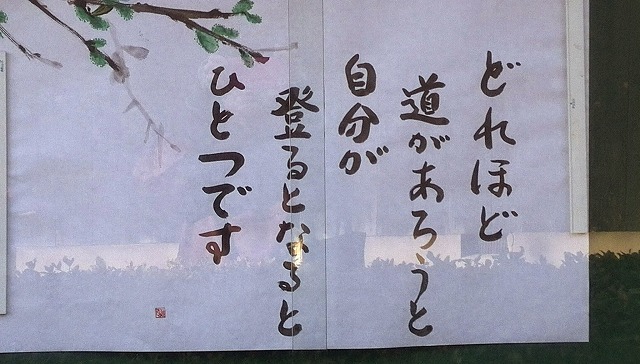 どれほど
道があろうと
自分が
登るとなると
ひとつです